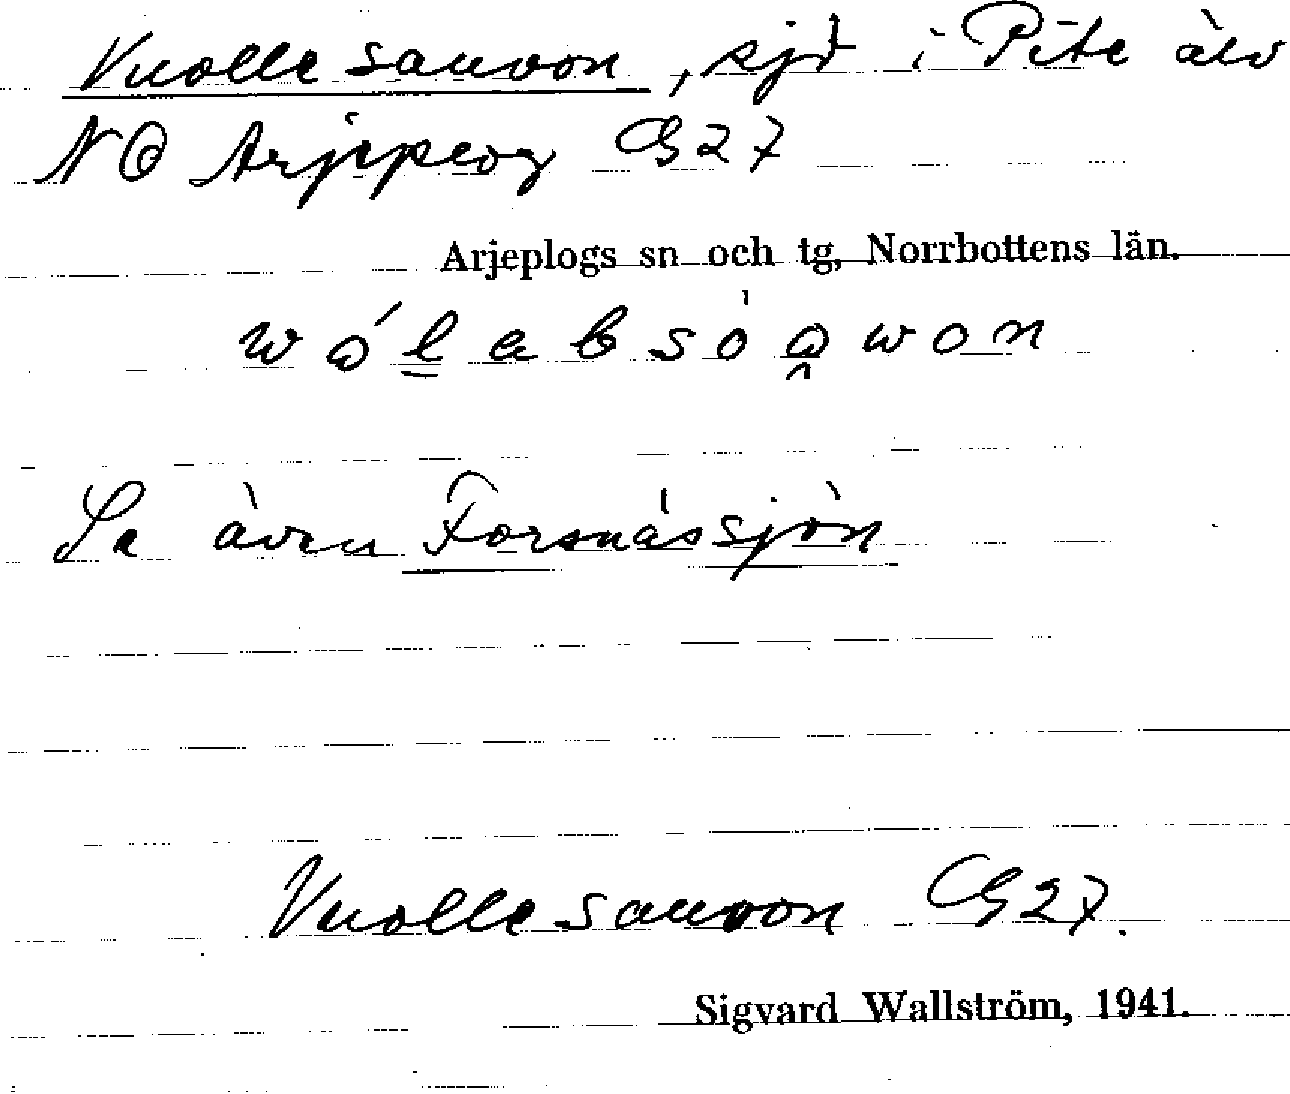 Vuollesauvon, sjö i Pite älv
NO Arjeplog G27
Arjeplogs sn och tg, Norrbottens län.
Se även Forsnässjön
Vuollesauvon G27.
Sigvard Wallström, 1941.